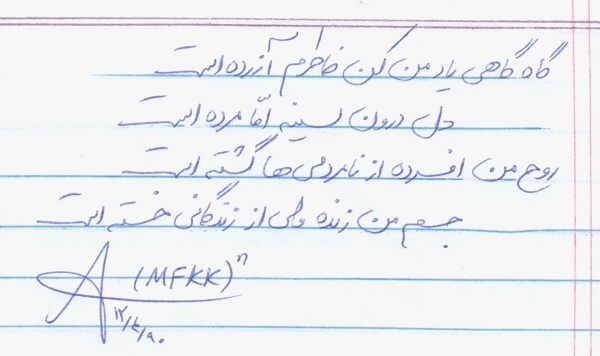 گاه گاهی یاد من کن خاطرم آزرده است
دل درون سینه امّا مرده است
روح من افسرده از نامردمی ها گشته است
جسم من زنده ولی از زندگانی خسته است
(MFKK)ⁿ
۱۲/۴/۹۰